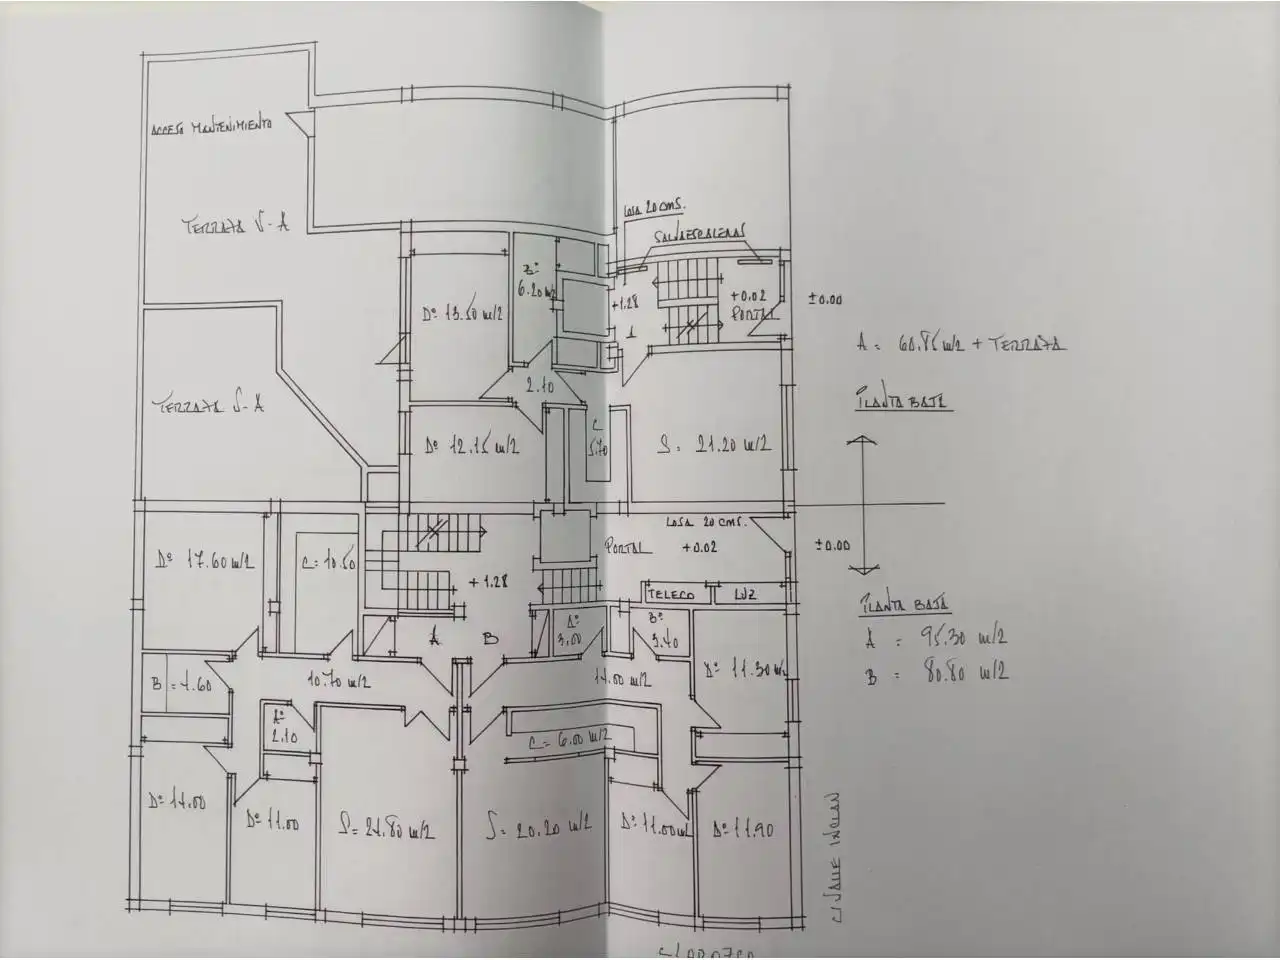 ACCESO MANTENIMIENTO
TERRAZA S-A
LOSA 20 CMS.
SALVAESCALERAS
Dº 13.50 m/2
Bº
6.20 m/2
+1.28
A
+0.02
PORTAL
±0.00
A = 60.85 m/2 + TERRAZA
PLANTA BAJA
TERRAZA S-A
2.10
Dº 12.15 m/2
C
5.70
S = 21.20 m/2
LOSA 20 CMS.
PORTAL +0.02
±0.00
Dº 17.60 m/2
C = 10.50
+1.28
TELECO
LUZ
PLANTA BAJA
A = 95.30 m/2
B = 80.80 m/2
A
B
Aº
3.00
Bº
3.40
Dº 11.30 m/2
B = 4.60
10.70 m/2
14.00 m/2
Aº
2.10
C = 6.00 m/2
Dº 14.00
Dº 11.00
S = 24.80 m/2
S = 20.20 m/2
Dº 11.00 m/2
Dº 11.90